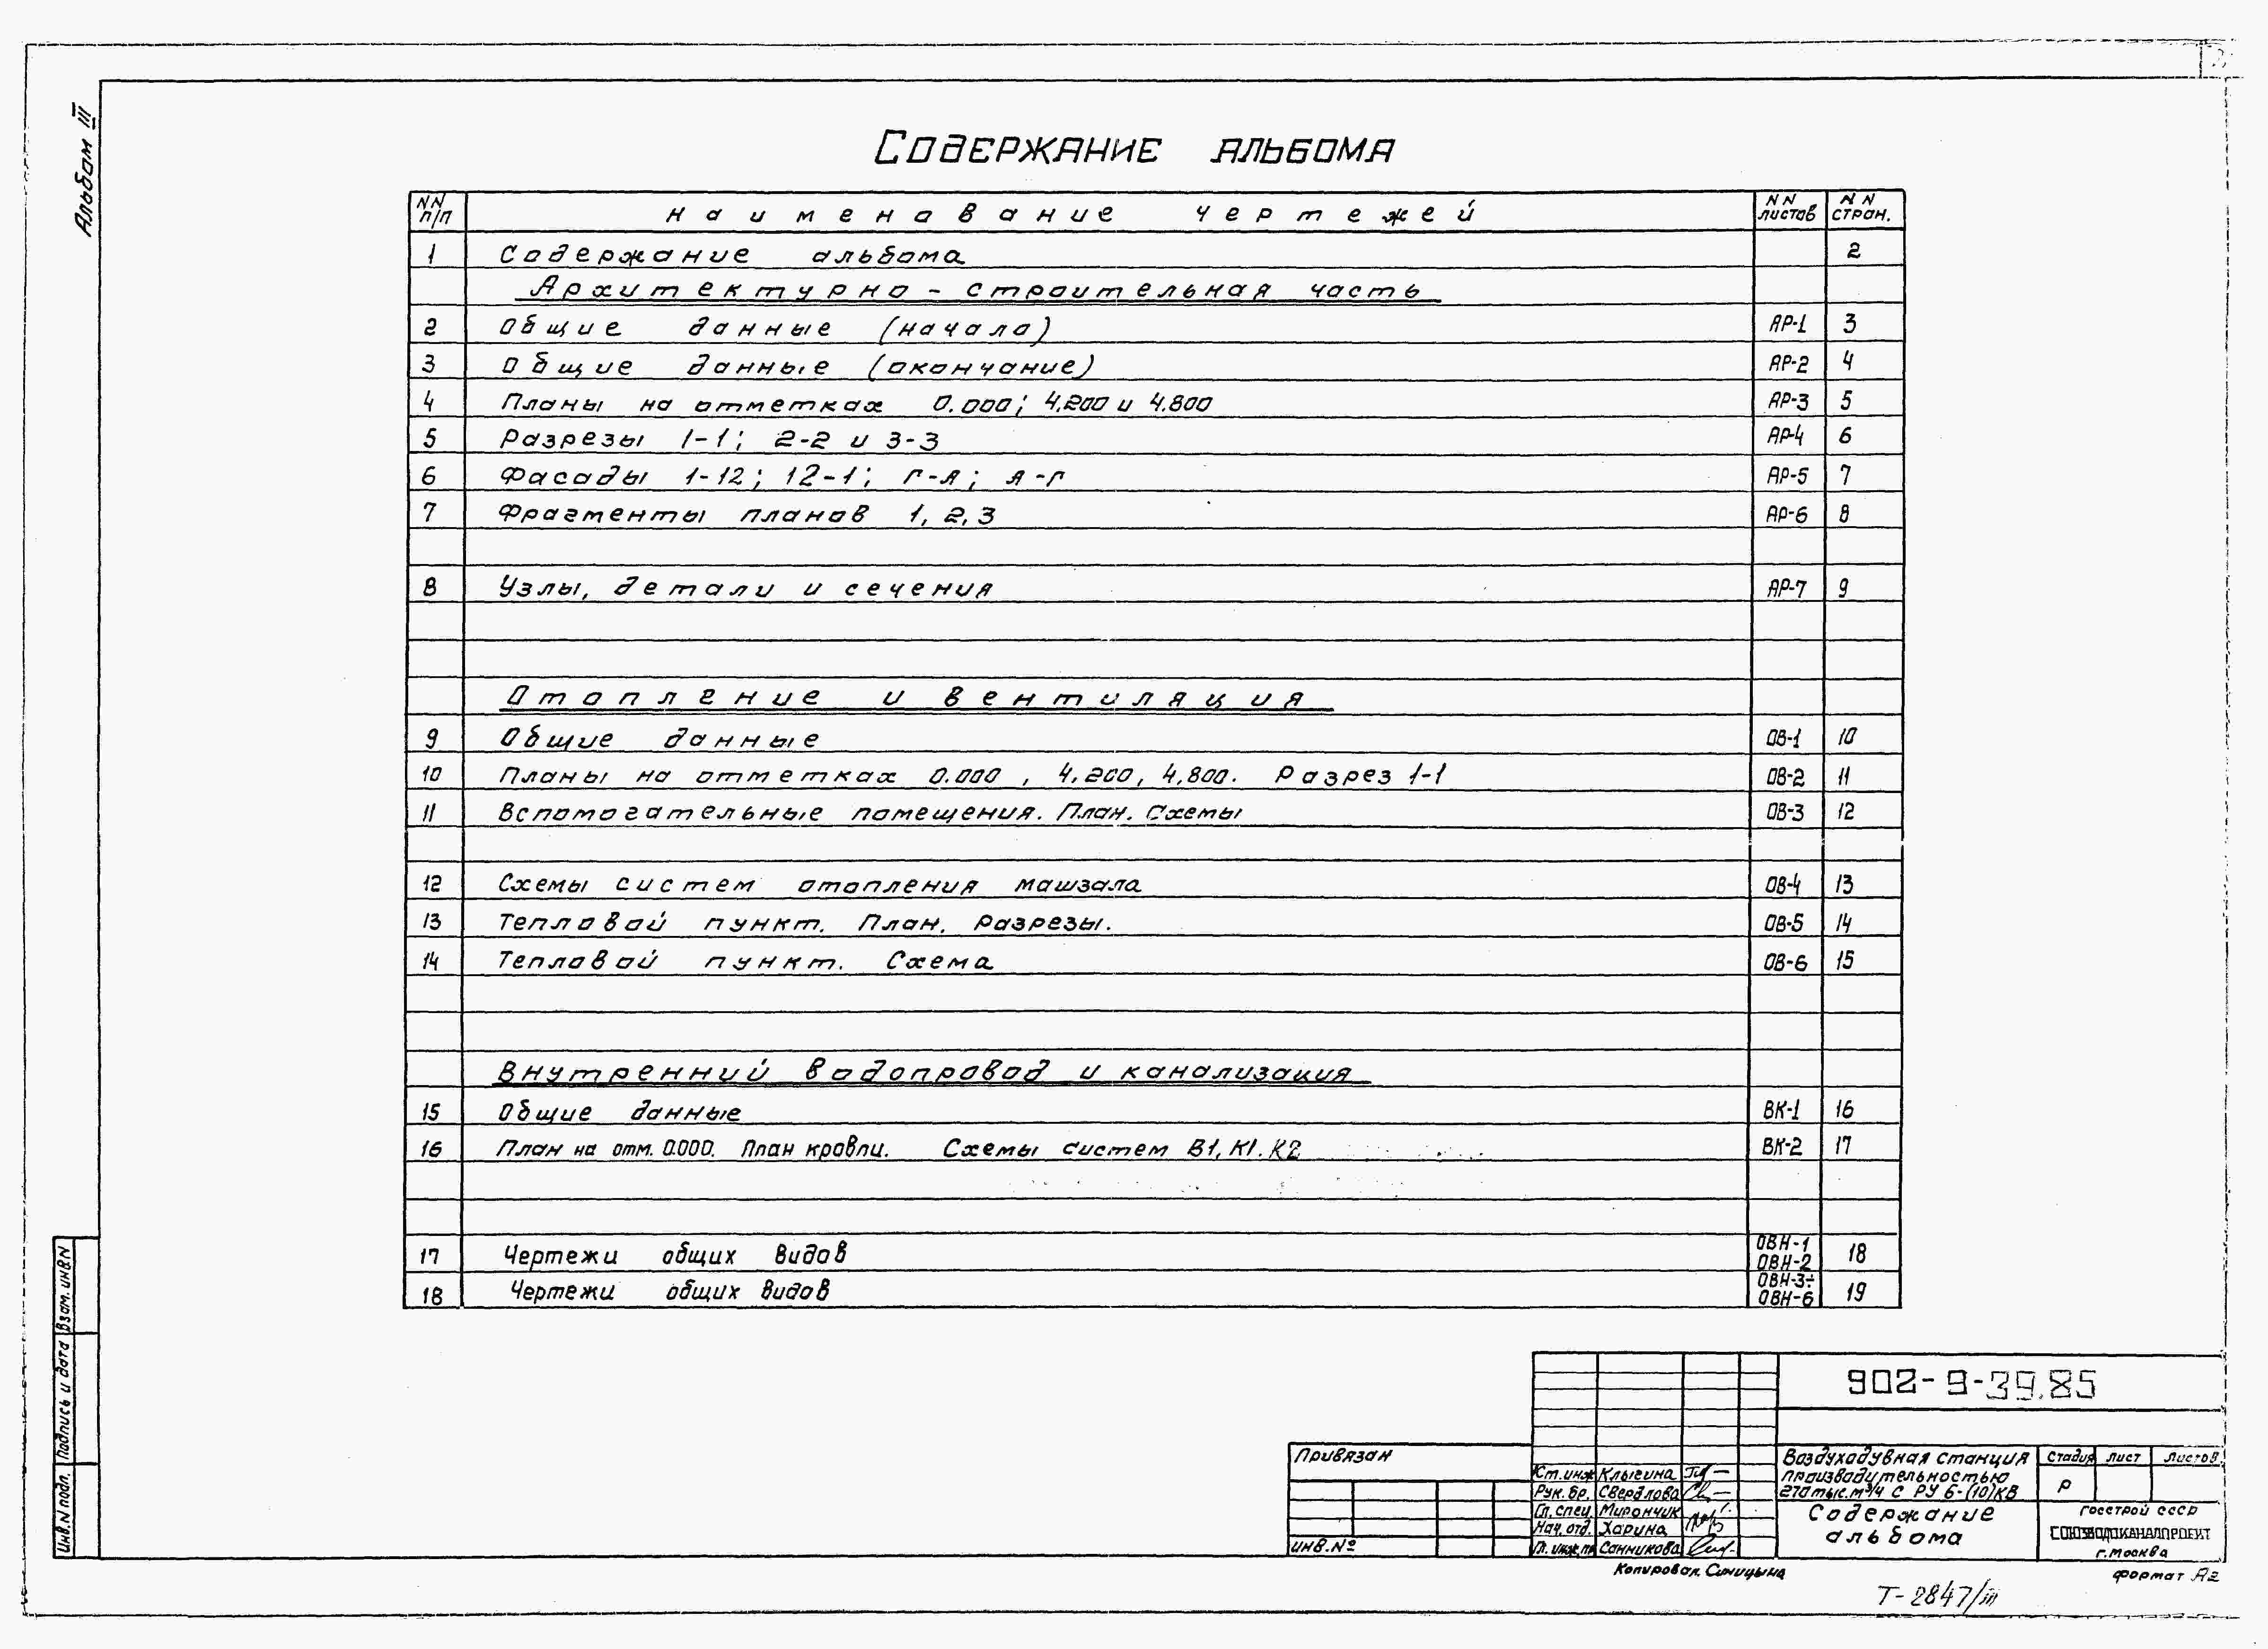 2
Альбом III
Содержание альбома
NN п/п Наименование чертежей NN листов NN стран.
1 Содержание альбома 2
Архитектурно-строительная часть
2 Общие данные (начало) АР-1 3
3 Общие данные (окончание) АР-2 4
4 Планы на отметках 0.000; 4,200 и 4.800 АР-3 5
5 Разрезы 1-1; 2-2 и 3-3 АР-4 6
6 Фасады 1-12; 12-1; Г-А; А-Г АР-5 7
7 Фрагменты планов 1, 2, 3 АР-6 8
8 Узлы, детали и сечения АР-7 9
Отопление и вентиляция
9 Общие данные ОВ-1 10
10 Планы на отметках 0.000, 4,200, 4,800. Разрез 1-1 ОВ-2 11
11 Вспомогательные помещения. План. Схемы ОВ-3 12
12 Схемы систем отопления машзала ОВ-4 13
13 Тепловой пункт. План. Разрезы. ОВ-5 14
14 Тепловой пункт. Схема ОВ-6 15
Внутренний водопровод и канализация
15 Общие данные ВК-1 16
16 План на отм. 0.000. План кровли. Схемы систем В1, К1. К2 ВК-2 17
17 Чертежи общих видов ОВН-1 ОВН-2 18
18 Чертежи общих видов ОВН-3÷ ОВН-6 19
Инв. N подл. Подпись и дата Взам. инв.N
902-9-39.85
Привязан
Инв. №
Ст. инж Клыгина
Рук. бр. Свердлова
Гл. спец. Мирончик
Нач. отд. Харина
Гл. инж. пр Санникова
Воздуходувная станция
производительностью
270 тыс. м³/ч с РУ 6-(10)КВ
Стадия Лист Листов
Р
Содержание
альбома
Госстрой СССР
СОЮЗВОДОКАНАЛПРОЕКТ
г. Москва
Копировал. Синицына
Формат А2
Т-2847/III